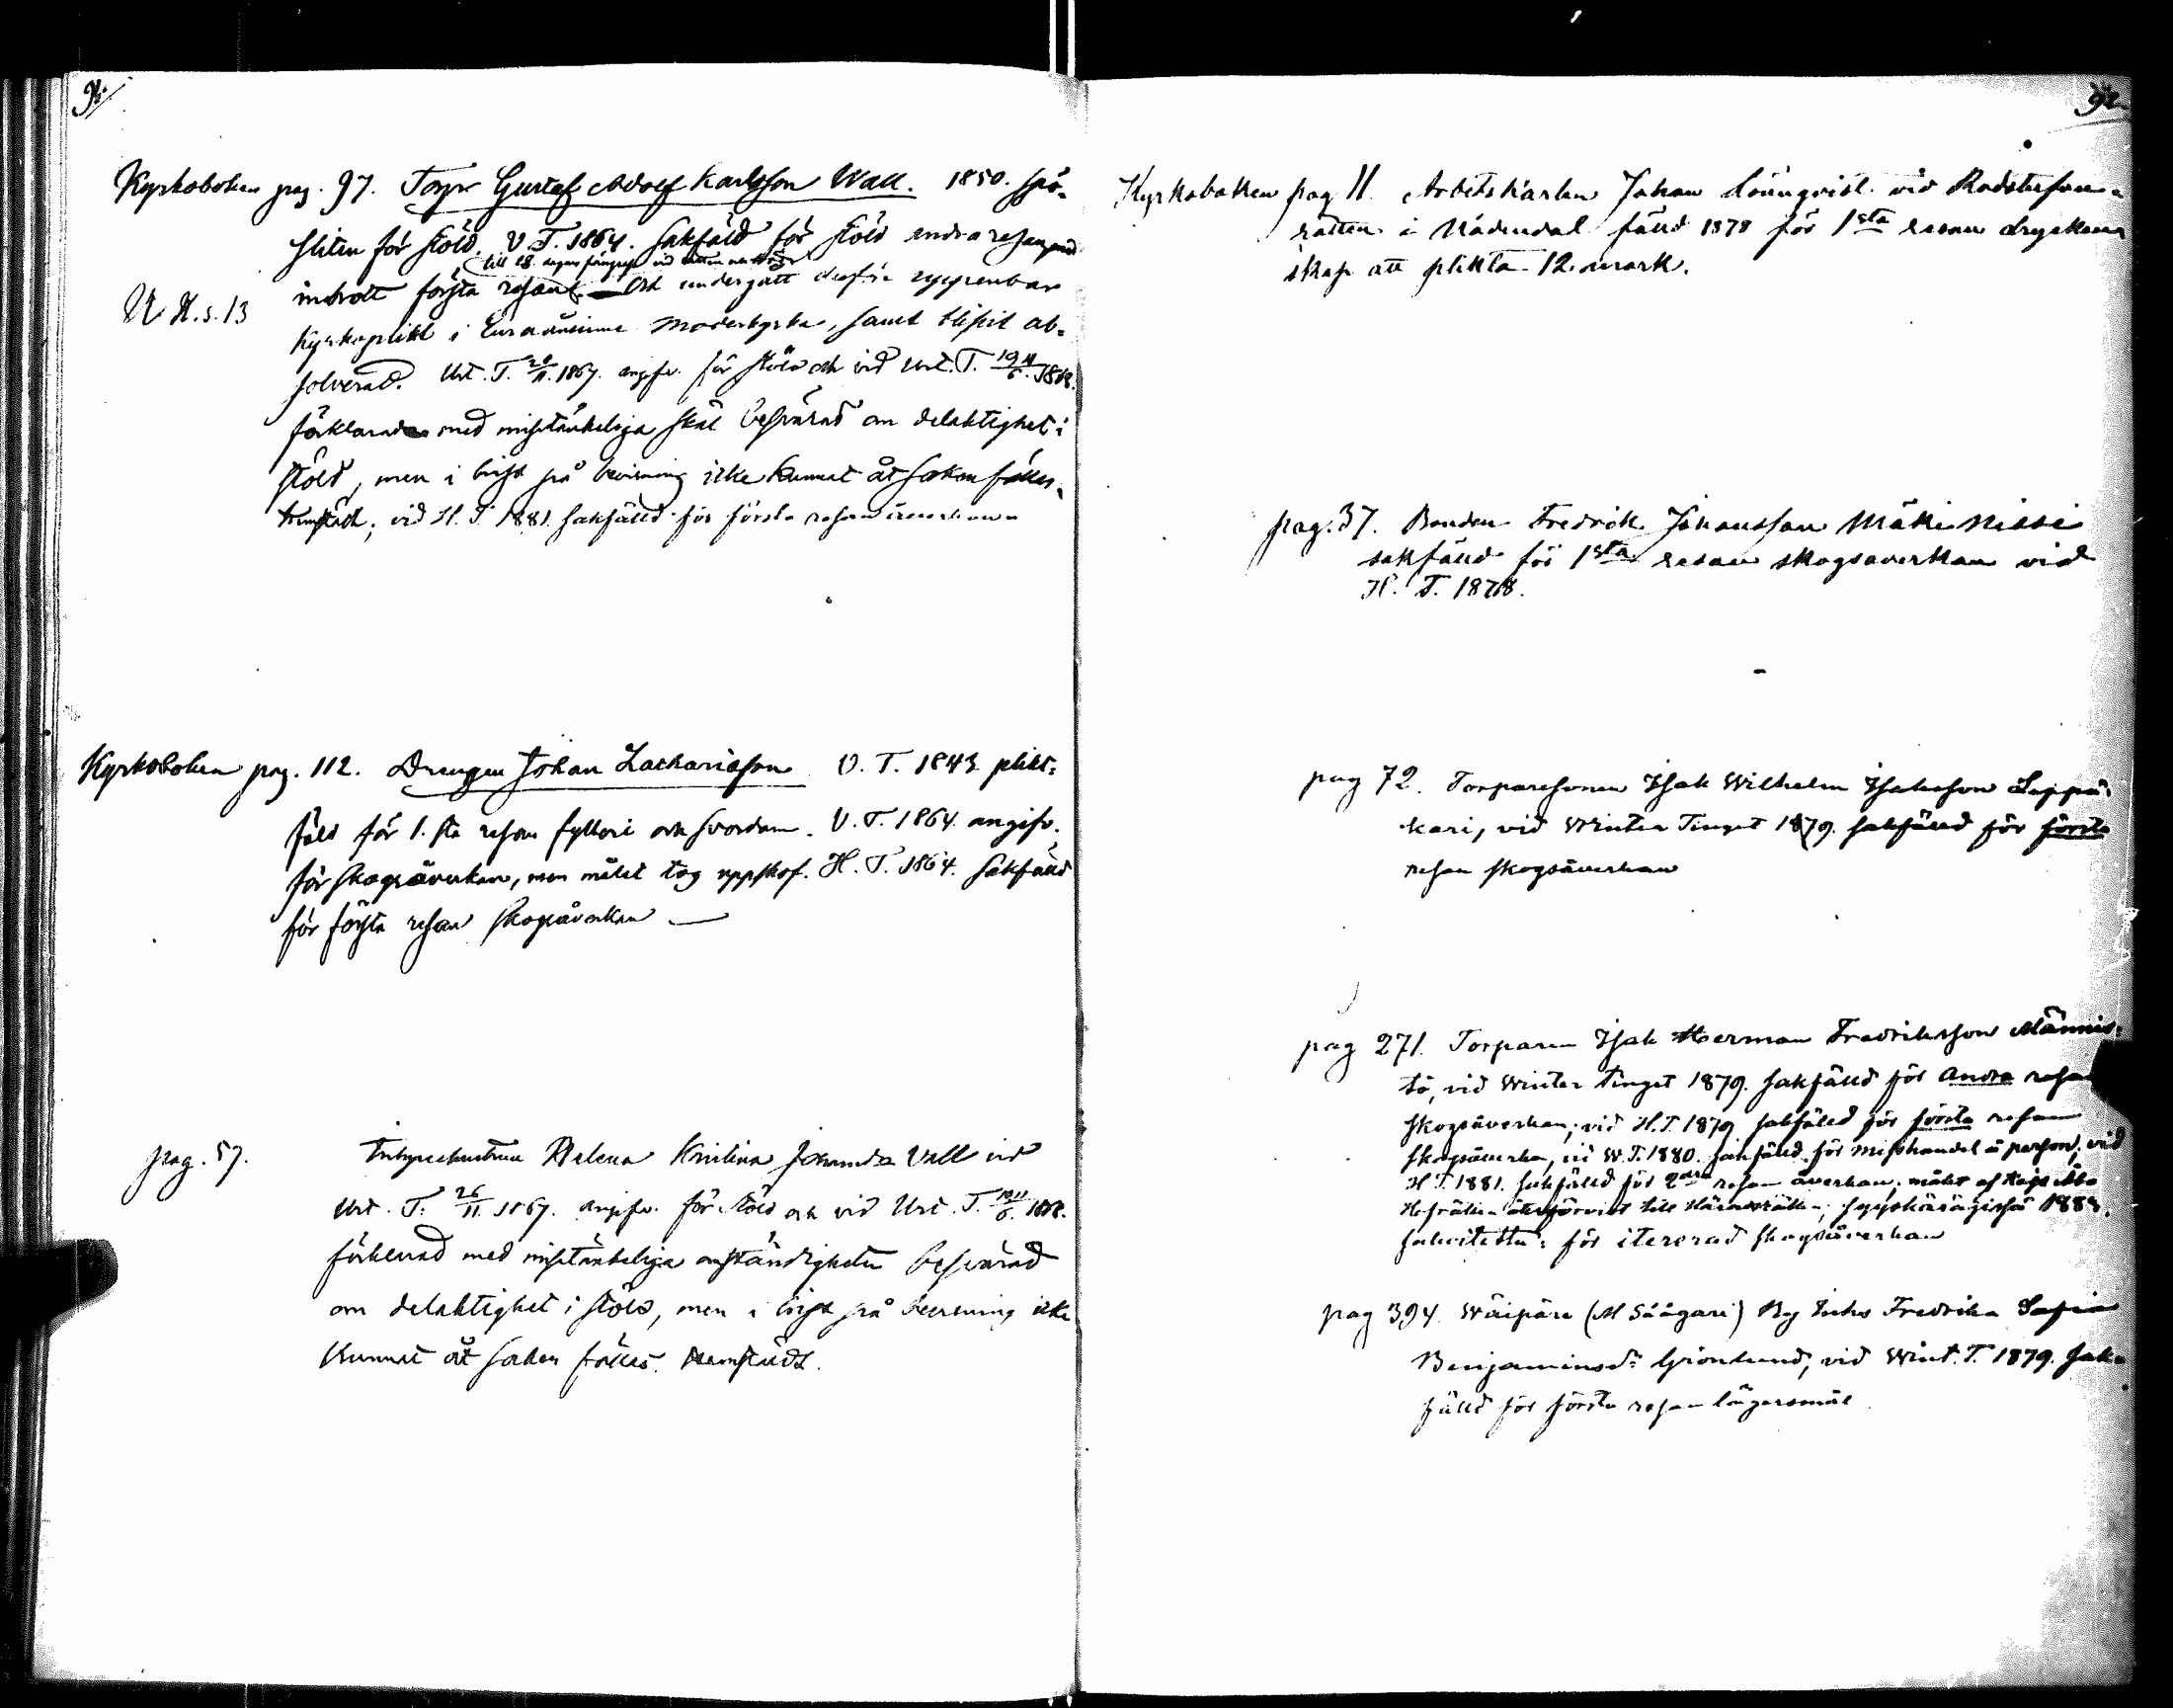 91.
Kyrkoboken pag. 97. Torpr Gustaf Adolf Karlsson Wall. 1850. spö-
sliten för stöld. V. T. 1864. sakfäld för stöld andra resan
till 28 dygns fängelse vid vatten och bröd
inbrott första resan och undergått derför uppenbar
N. H. s. 13
kyrkoplikt i Euraåminne moderkyrka, samt blifvit ab-
solverad. Urt. T. 26/11 1867. angifv. för stöld och vid Urt. T. 1868.
förklarad med misstänkeliga skäl besvärad om delaktighet i
stöld, men i brist på bevisning icke kunnat åt saken fällas,
framstäld; vid H. T. 1881. sakfälld för första resan åverkan
Kyrkoboken pag. 112. Drengen Johan Zachariasson V. T. 1843 plikt-
fäld för 1.sta resan fylleri och svordom. V. T. 1864. angifv.
för skogsåverkan, men målet tog uppskof. H. T. 1864. sakfälld
för första resan skogsåverkan —
pag. 57. Inhysehustrun Helena Kristina Johansdr Vall vid
Urt. T. 26/11 1867. angifv. för stöld och vid Urt. T. 1868.
förklarad med misstänkeliga omständigheter besvärad
om delaktighet i stöld, men i brist på bevisning icke
kunnat åt saken fällas.
92.
Kyrkoboken pag 11. Arbetskarlen Johan Lönnqvist vid Rådstufvu-
rätten i Nådendal fälld 1878 för 1sta resan dryckens-
skap att plikta 12. mark.
pag. 37. Bonden Fredrik Johansson Mäki Nissi
sakfälld för 1sta resan skogsåverkan vid
H. T. 1878.
pag 72. Torparesonen Isak Wilhelm Isaksson Leppä-
kari, vid Winter Tinget 1879. sakfälld för första
resan skogsåverkan
pag 271. Torparen Isak Herman Fredriksson Männis-
tö, vid Winter Tinget 1879. sakfälld för andra resan
skogsåverkan; vid H. T. 1879 sakfälld för första resan
skogsåverkan, vid W. T. 1880. sakfälld för misshandel å person; vid
H. T. 1881. sakfälld för 2dra resan åverkan; målet af Kejs. Åbo
Hofrätten återförvist till Häradsrätten; syyskäräjissä 1883.
sakoitettu: för itererad skogsåverkan
pag 394. Wäipäre (M Säägari) By Inhs Fredrika Sofia
Benjaminsdr Grönlund, vid Wint. T. 1879. sak-
fälld för första resan lägersmål